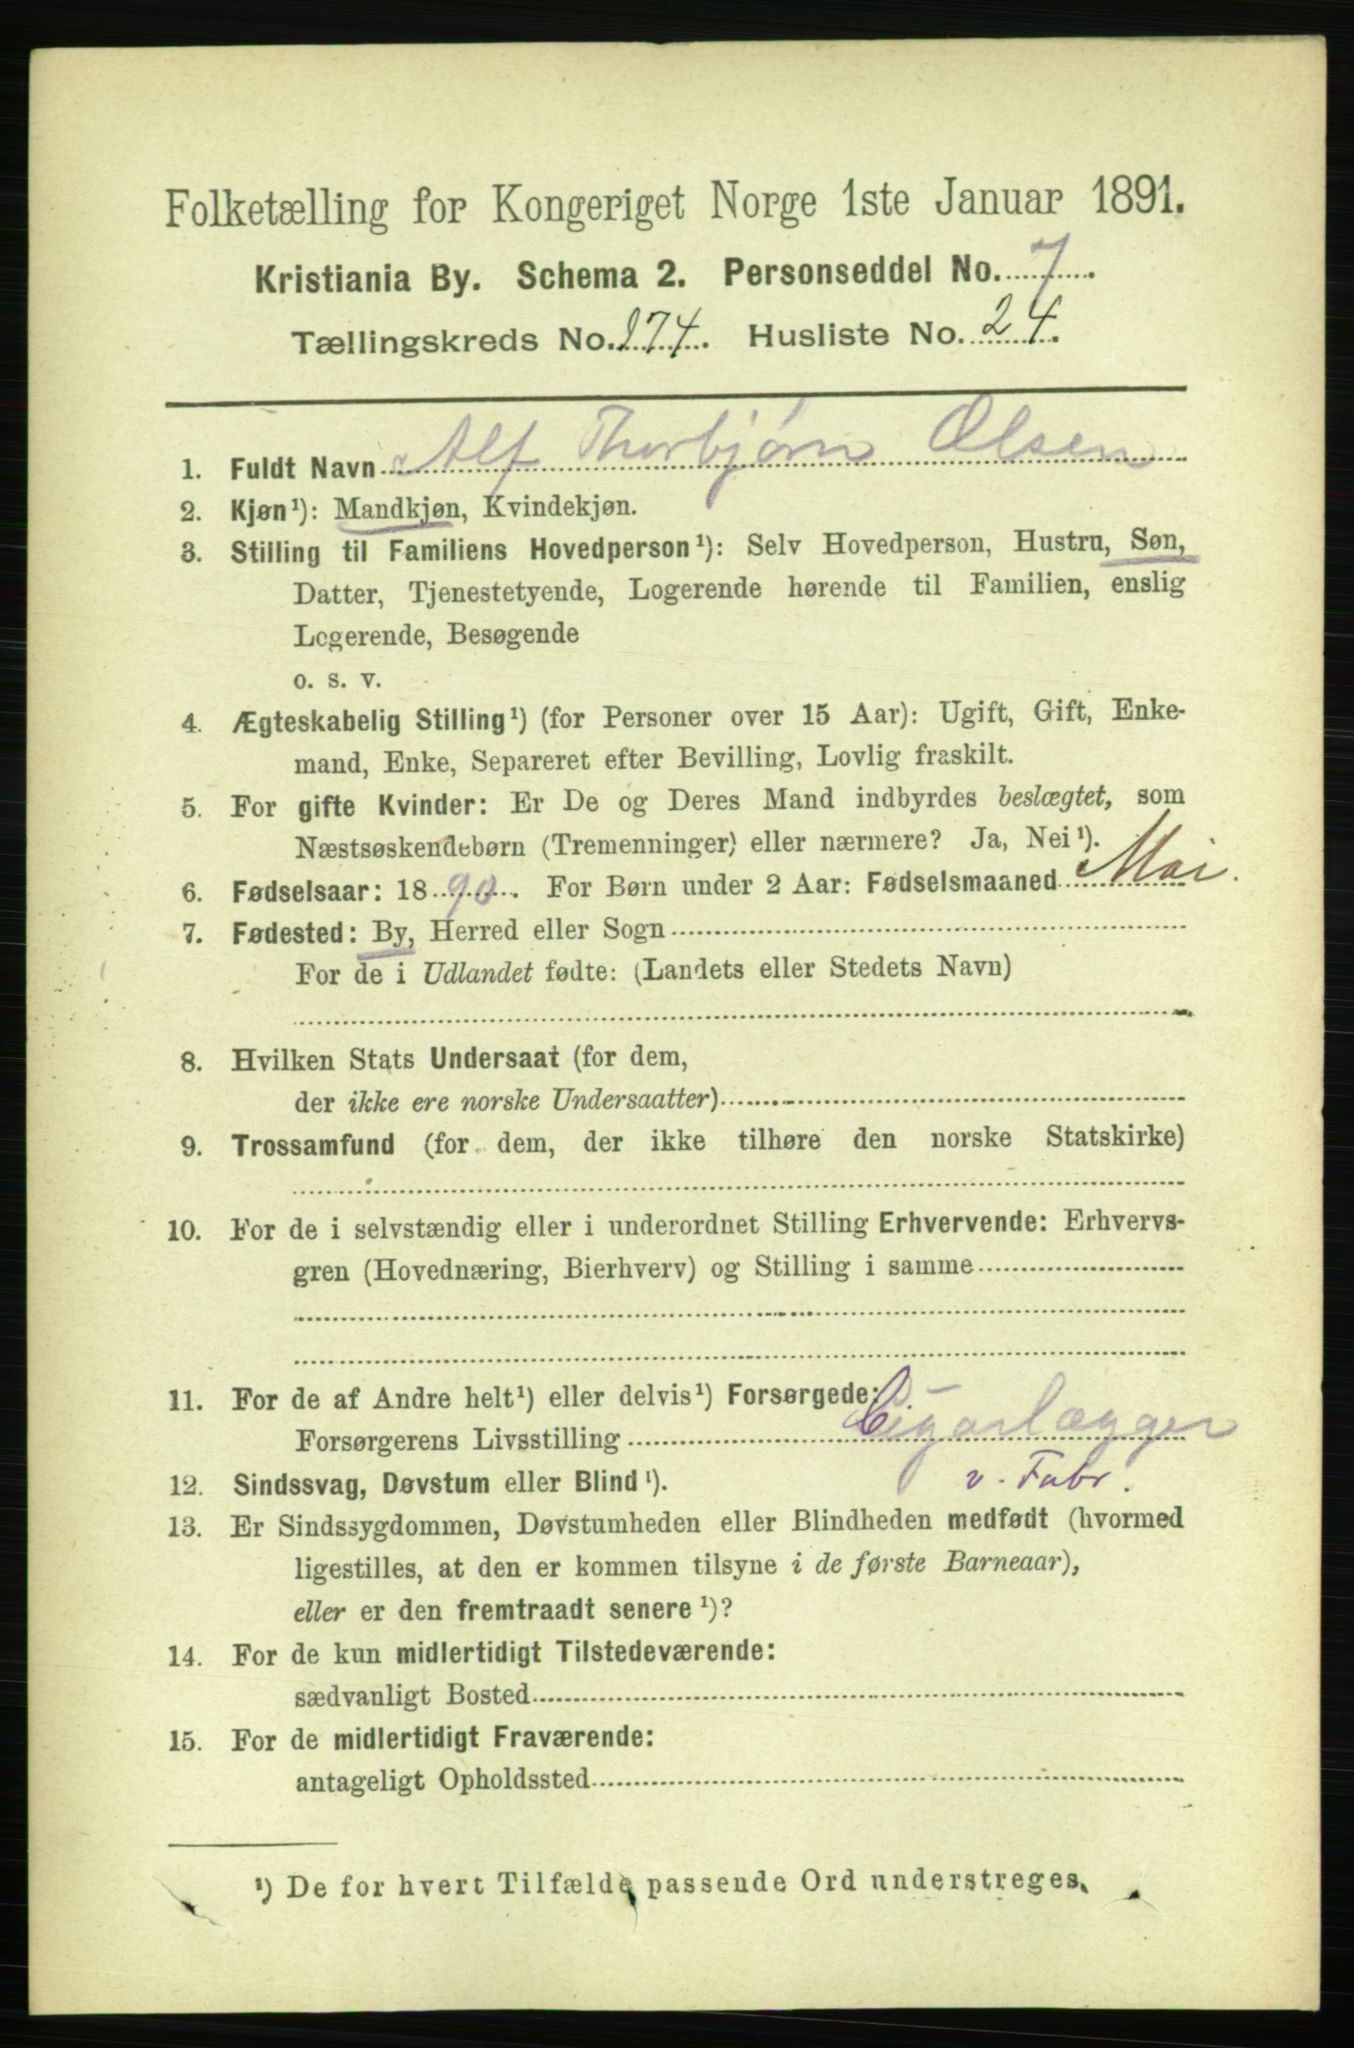 Folketælling for Kongeriget Norge 1ste Januar 1891.
Kristiania By. Schema 2. Personseddel No. 7.
Tællingskreds No. 174. Husliste No. 24.
1. Fuldt Navn Alf Thorbjørn Olsen
2. Kjøn¹): Mandkjøn, Kvindekjøn.
3. Stilling til Familiens Hovedperson¹): Selv Hovedperson, Hustru, Søn,
Datter, Tjenestetyende, Logerende hørende til Familien, enslig
Logerende, Besøgende
o. s. v.
4. Ægteskabelig Stilling¹) (for Personer over 15 Aar): Ugift, Gift, Enke-
mand, Enke, Separeret efter Bevilling, Lovlig fraskilt.
5. For gifte Kvinder: Er De og Deres Mand indbyrdes beslægtet, som
Næstsøskendebørn (Tremenninger) eller nærmere? Ja, Nei¹).
6. Fødselsaar: 1890. For Børn under 2 Aar: Fødselsmaaned Mai.
7. Fødested: By, Herred eller Sogn
For de i Udlandet fødte: (Landets eller Stedets Navn)
8. Hvilken Stats Undersaat (for dem,
der ikke ere norske Undersaatter)
9. Trossamfund (for dem, der ikke tilhøre den norske Statskirke)
10. For de i selvstændig eller i underordnet Stilling Erhvervende: Erhvervs-
gren (Hovednæring, Bierhverv) og Stilling i samme
11. For de af Andre helt¹) eller delvis¹) Forsørgede:
Forsørgerens Livsstilling Cigarlægger
12. Sindssvag, Døvstum eller Blind¹). v. Fabr.
13. Er Sindssygdommen, Døvstumheden eller Blindheden medfødt (hvormed
ligestilles, at den er kommen tilsyne i de første Barneaar),
eller er den fremtraadt senere¹)?
14. For de kun midlertidigt Tilstedeværende:
sædvanligt Bosted
15. For de midlertidigt Fraværende:
antageligt Opholdssted
¹) De for hvert Tilfælde passende Ord understreges.